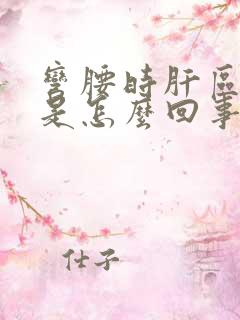 彎腰時肝區
是怎麼回事
仕子